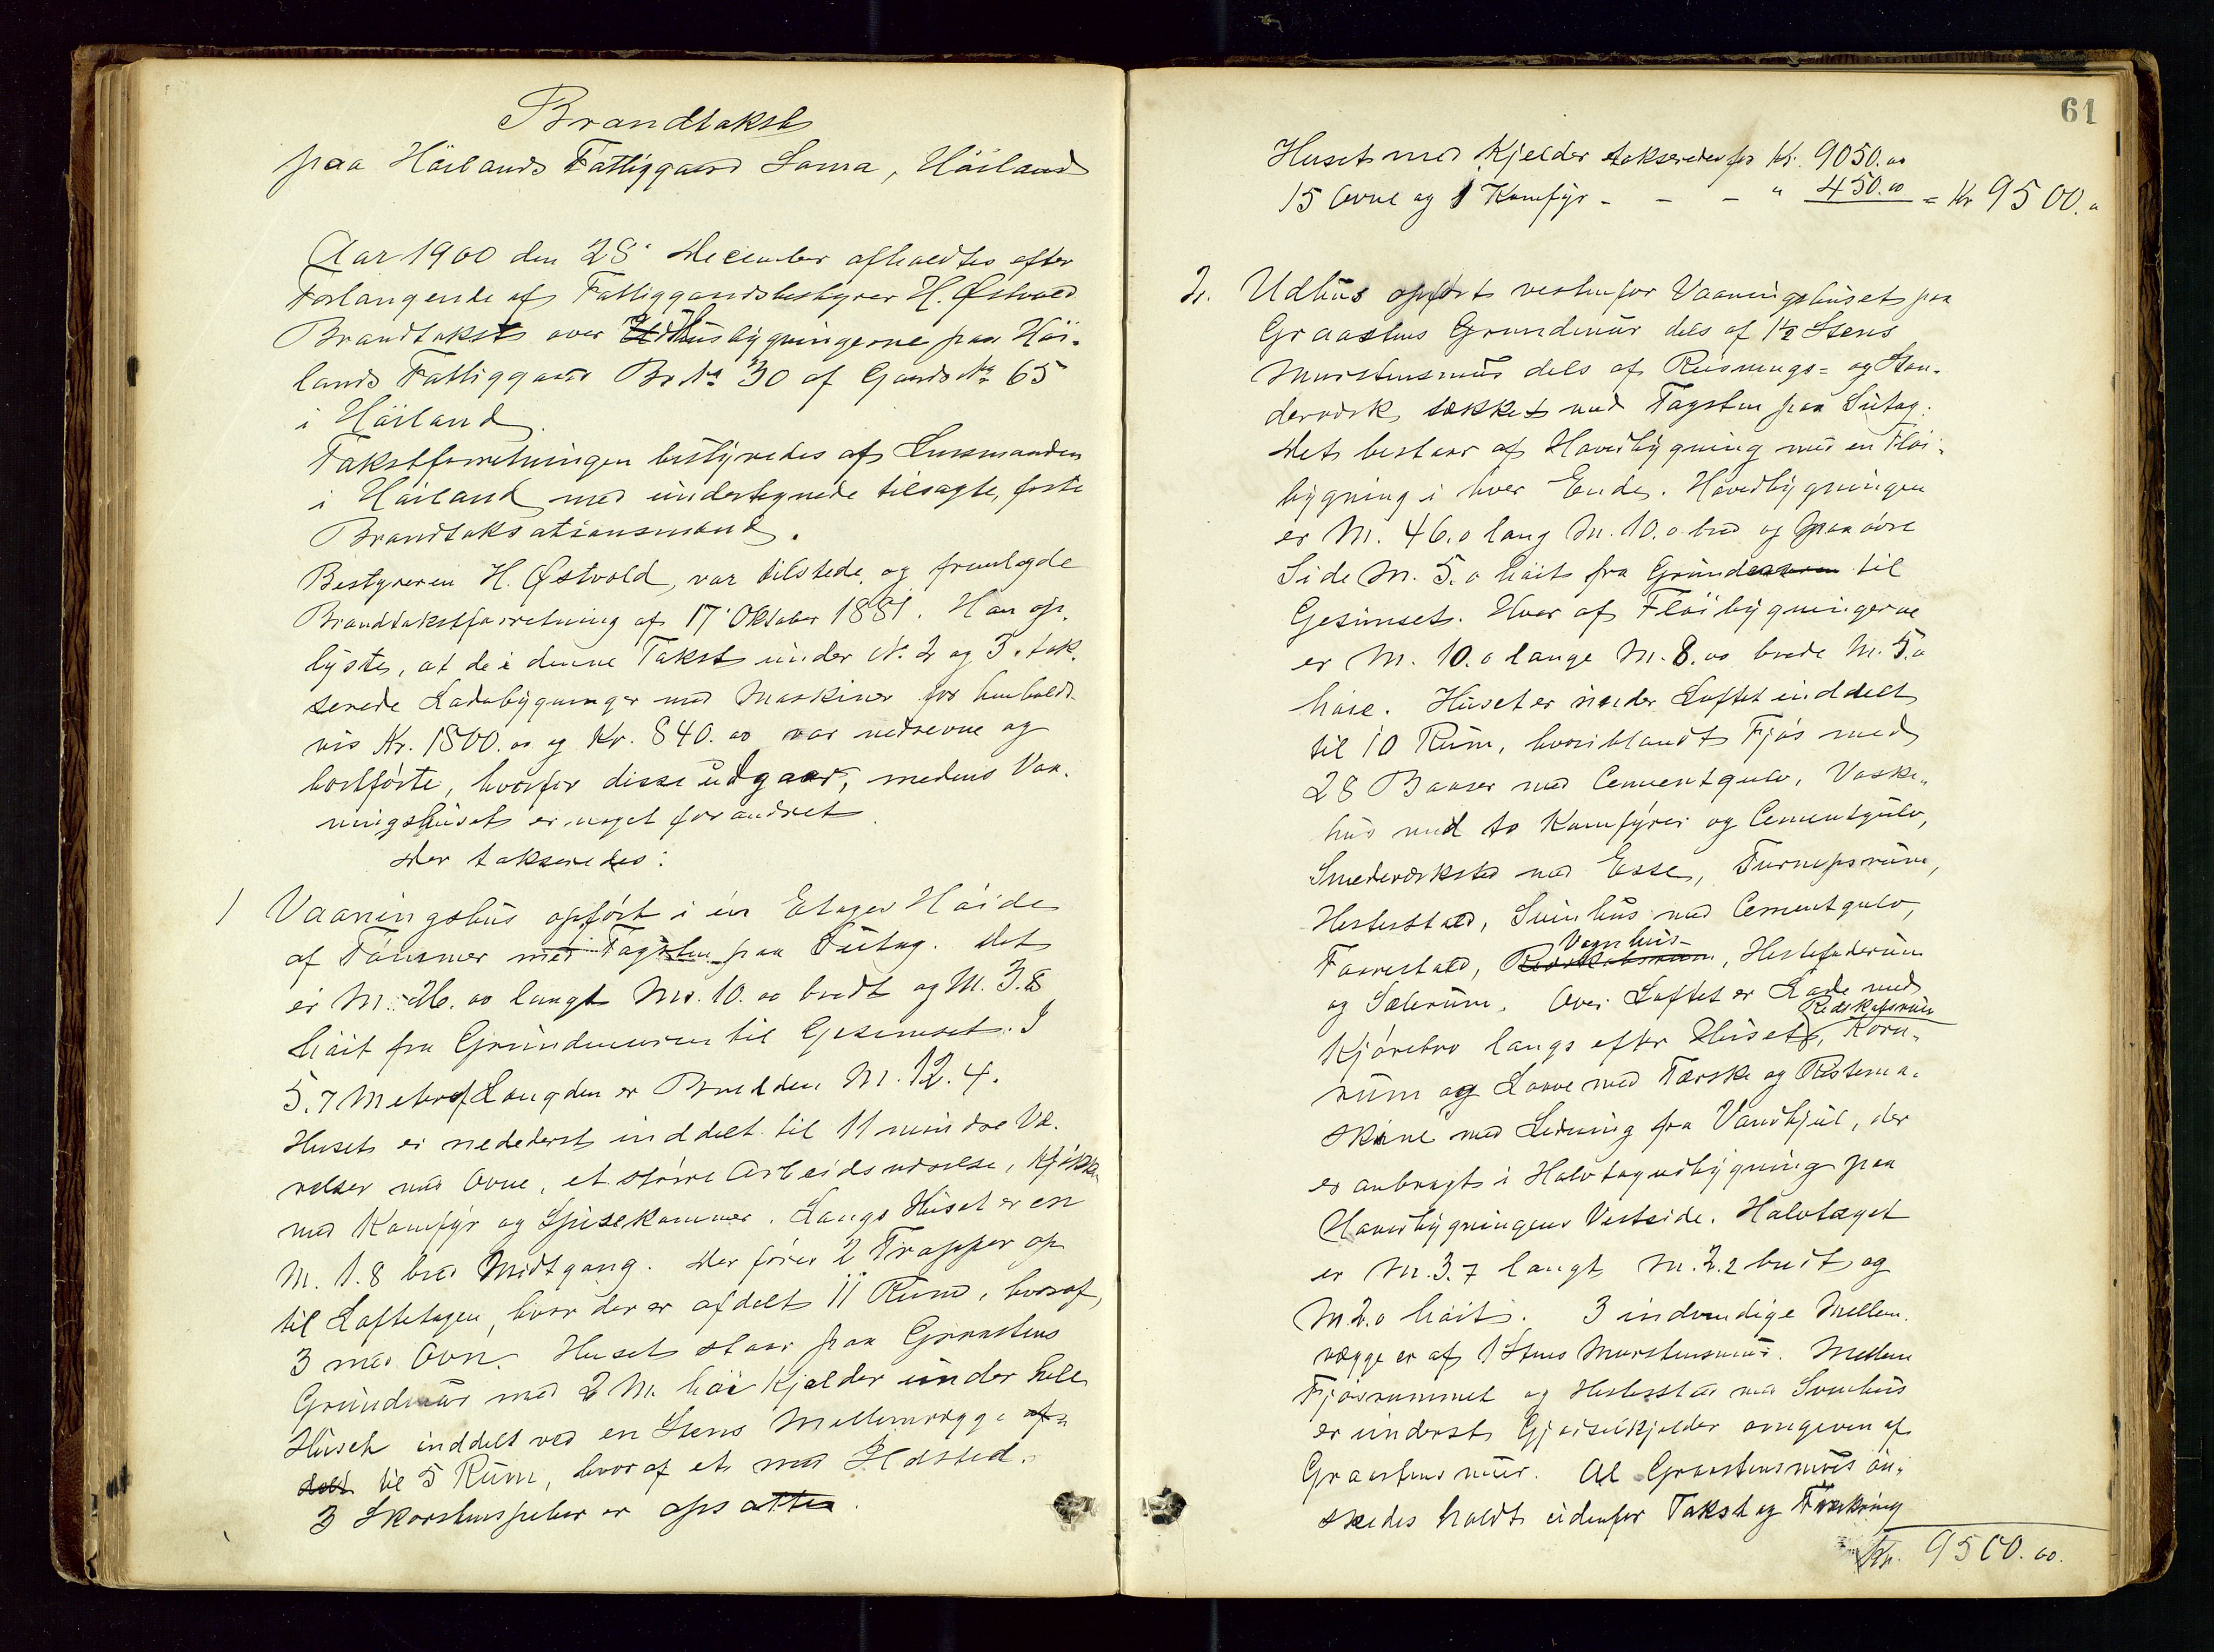 Brandtakst
paa Höilands Fattiggaard Soma, Höiland
Aar 1900 den 28' December afholdtes efter
Forlangende af Fattiggaardsbestyrer H. Østvold
Brandtakst over Husbygningerne paa Höi-
lands Fattiggaard Br. No 30 af Gaards No 65
i Höiland.
Takstforretningen bestyredes af Lensmanden
i Höiland med undertegnede tilsagte, faste
Brandtaksationsmænd.
Bestyreren H. Østvold, var tilstede og fremlagde
Brandtakstforretning af 17' Oktober 1881. Han op-
lyste, at de i denne Takst under N. 2 og 3. tak-
serede Ladebygninger med Maskiner for henholds-
vis Kr. 1800.00 og Kr. 840.00 var nedrevne og
bortförte, hvorfor disse udgaar, medens Vaa-
ningshuset er noget forandret.
Der takseredes:
1 Vaaningshus opfört i én Etages Höide
af Tömmer med Tagsten paa Sutag. Det
er M. 26.00 langt M. 10.00 bredt og M. 3.8
höit fra Grundmuren til Gesimset. I
5.7 Meter af Længden er Bredden M. 12.4.
Huset er nederst inddelt til 11 mindre Væ-
relser med Ovne, et större Arbeidsværelse, Kjökken
med Komfyr og Spisekammer. Langs Huset er en
M. 1.8 bred Midtgang. Der förer 2 Trapper op
til Loftetagen, hvor der er afdelt 11 Rum, hvoraf
3 med Ovn. Huset staar paa Graastens
Grundmur med 2 M. höi Kjelder under hele
Huset inddelt ved en Stens Mellemvægge af-
delt til 5 Rum, hvoraf et med Ildsted.
3 Skorstenspiber er opsatte.
61
Huset med Kjelder takseredes for Kr. 9050.00
15 Ovne og 1 Komfyr - - - " 450.00 = Kr 9500.00
2. Udhus opfört vestenfor Vaaningshuset paa
Graastens Grundmur dels af 1½ Stens
Murstensmur dels af Reisnings- og Stan-
derværk, tækket med Tagsten paa Sutag.
Det bestaar af Hovedbygning med en Flöi-
bygning i hver Ende. Hovedbygningen
er M. 46.0 lang M. 10.0 bred og paa övre
Side M. 5.0 höit fra Grunden til
Gesimset. Hver af Flöibygningerne
er M. 10.0 lange M. 8.00 brede M. 5.0
höie. Huset er under Loftet inddelt
til 10 Rum, hvoriblandt Fjös med
28 Baaser med Cementgulv, Vaske-
hus med to Komfyrer og Cementgulv,
Smedeværksted med Esse, Turnipsrum,
Hestestald, Svinhus med Cementgulv,
Faarestald, Vognhus, Hestefoderrum
og Sælerum. Over Loftet er Lade med
Kjörebro langs efter Huset, Redskabsrum Korn-
rum og Laave med Tærske og Ristema-
skine med Ledning fra Vandhjul, der
er anbragt i Halvtagudbygning paa
Hovedbygningens Vestside. Halvtaget
er M. 3.7 langt M. 2.2 bredt og
M. 2.0 höit. 3 indvendige Mellem-
vægge er af 1 Stens Murstensmur. Mellem
Fjösrummet og Hestestald med Svinhus
er underst Gjödselkjelder omgiven af
Graastensmur. Al Graastensmur ön-
skedes holdt udenfor Takst og Forsikring
Kr. 9500.00.